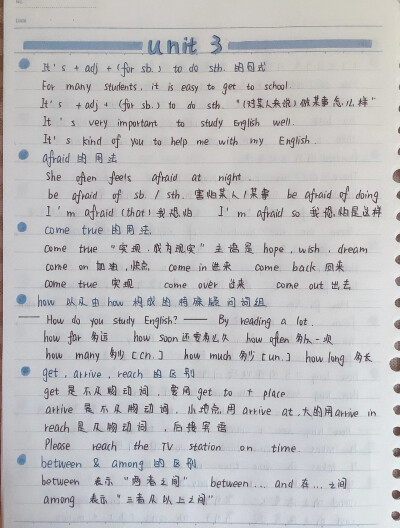 unit 3
It's + adj + (for sb.) to do sth. 的句式
For many students, it is easy to get to school.
It's + adj + (for sb.) to do sth. "(对某人来说)做某事怎么样"
It's very important to study English well.
It's kind of you to help me with my English.
afraid 的用法
She often feels afraid at night.
be afraid of sb / sth. 害怕某人/某事 be afraid of doing
I'm afraid (that) 我恐怕 I'm afraid so 我恐怕是这样
come true 的用法
come true "实现,成为现实" 主语是 hope, wish, dream
come on 加油,快点 come in 进来 come back 回来
come true 实现 come over 过来 come out 出去
how 以及由 how 构成的特殊疑问词组
—— How do you study English? —— By reading a lot.
how far 多远 how soon 还要多久 how often 多久一次
how many 多少 [cn.] how much 多少 [un.] how long 多长
get, arrive, reach 的区别
get 是不及物动词,常用 get to + place
arrive 是不及物动词,小地点用 arrive at,大的用 arrive in
reach 是及物动词,后接宾语
Please reach the TV station on time.
between & among 的区别
between 表示 "两者之间" between ... and 在 ... 之间
among 表示 "三者及以上之间"